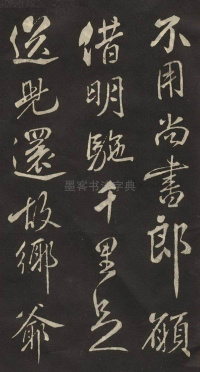 不用尚書郎願
借明駞千里足
送兒還故鄉爺
墨客书法字典